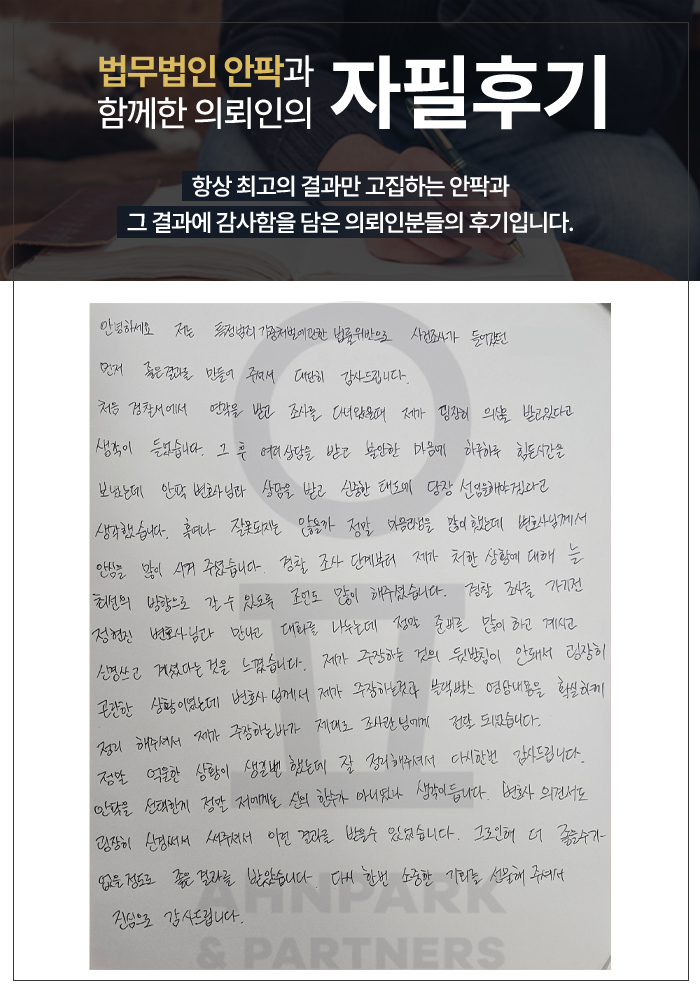 법무법인 안팍과
함께한 의뢰인의
자필후기
항상 최고의 결과만 고집하는 안팍과
그 결과에 감사함을 담은 의뢰인분들의 후기입니다.
안녕하세요 저는 특정범죄 가중처벌에관한 법률위반으로 사건조사가 들어갔던
먼저 좋은결과를 만들어 주셔서 대단히 감사드립니다.
처음 경찰서에서 연락을 받고 조사를 다녀왔을때 제가 굉장히 의심을 받고있다고
생각이 들었습니다. 그 후 여러상담을 받고 불안한 마음에 하루하루 힘든시간을
보냈는데 안팍 변호사님과 상담을 받고 신중한 태도에 당장 선임을해야겠다고
생각했습니다. 혹여나 잘못되지는 않을까 정말 마음고생을 많이했는데 변호사님께서
안심을 많이 시켜 주셨습니다. 경찰 조사 단계부터 제가 처한 상황에 대해 늘
최선의 방향으로 갈 수 있도록 조언도 많이 해주셨습니다. 경찰 조사를 가기전
정현진 변호사님과 만나고 대화를 나누는데 정말 준비를 많이 하고 계시고
신경쓰고 계셨다는것을 느꼈습니다. 제가 주장하는 것의 뒷받침이 안돼서 굉장히
곤란한 상황이었는데 변호사님께서 제가 주장하는것과 블랙박스 영상내용을 확실하게
정리 해주셔서 제가 주장하는바가 제대로 조사관님에게 전달 되었습니다.
정말 억울한 상황이 생길뻔 했는데 잘 정리해주셔서 다시한번 감사드립니다.
안팍을 선택한게 정말 저에게는 신의 한수가 아니었나 생각이듭니다. 변호사 의견서도
굉장히 신경써서 써주셔서 이런 결과를 받을수 있었습니다. 그로인해 더 좋을수가
없을정도로 좋은 결과를 받았습니다. 다시 한번 소중한 기회를 선물해 주셔서
진심으로 감사드립니다.
AHNPARK
& PARTNERS